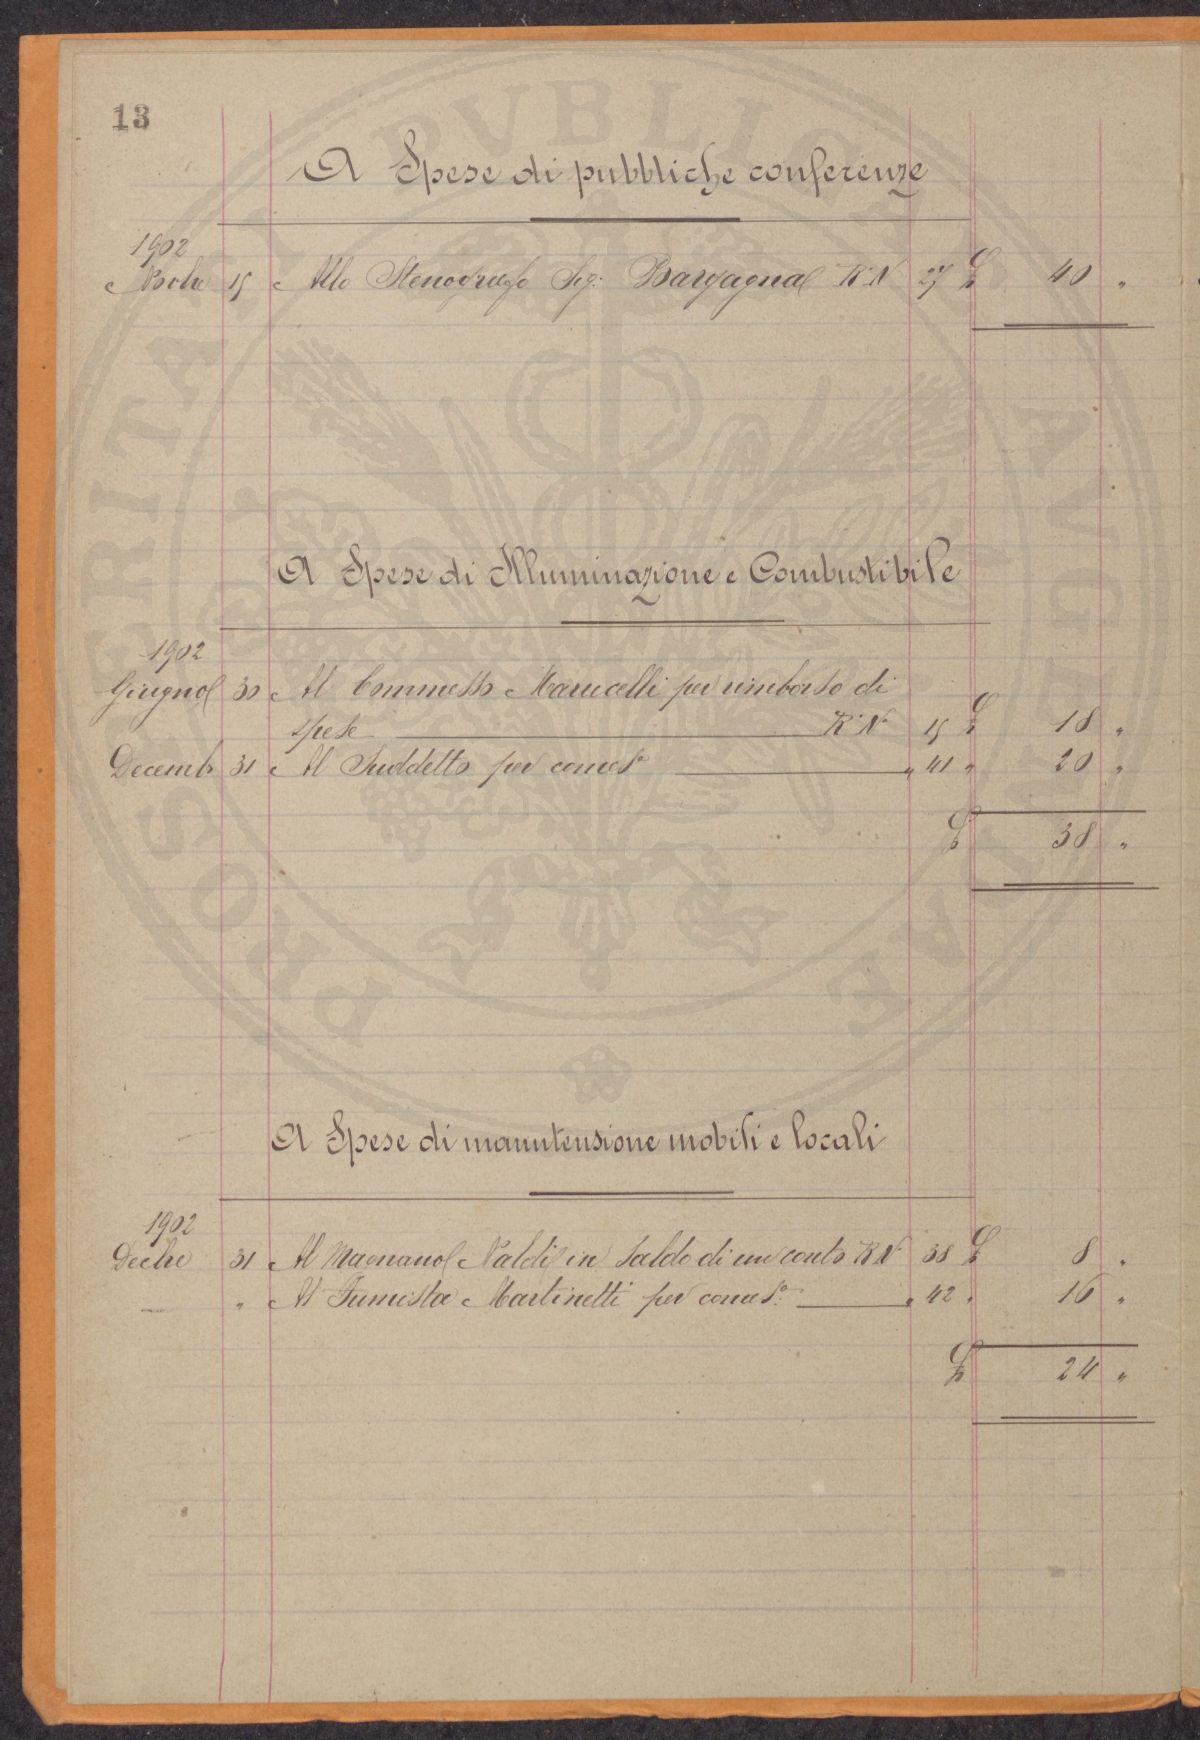 13
A Spese di pubbliche conferenze
1902
Nbbre 15 Allo Stenografo Sig. Bargagna R. N 27 £ 40 "
A Spese di Illuminazione e Combustibile
1902
Giugno 30 Al Commesso Marucelli per rimborso di
spese R. N 15 £ 18 "
Decemb 31 Al Suddetto per come Sa " 41 " 20 "
£ 38 "
A Spese di manutensione mobili e locali
1902
Decbre 31 Al Magnano Naldi in saldo di un conto R N 38 £ 8 "
" Al Fumista Martinetti per come Sa " 42 " 16 "
£ 24 "
PROSPERITATI PVBLICAE AVGE